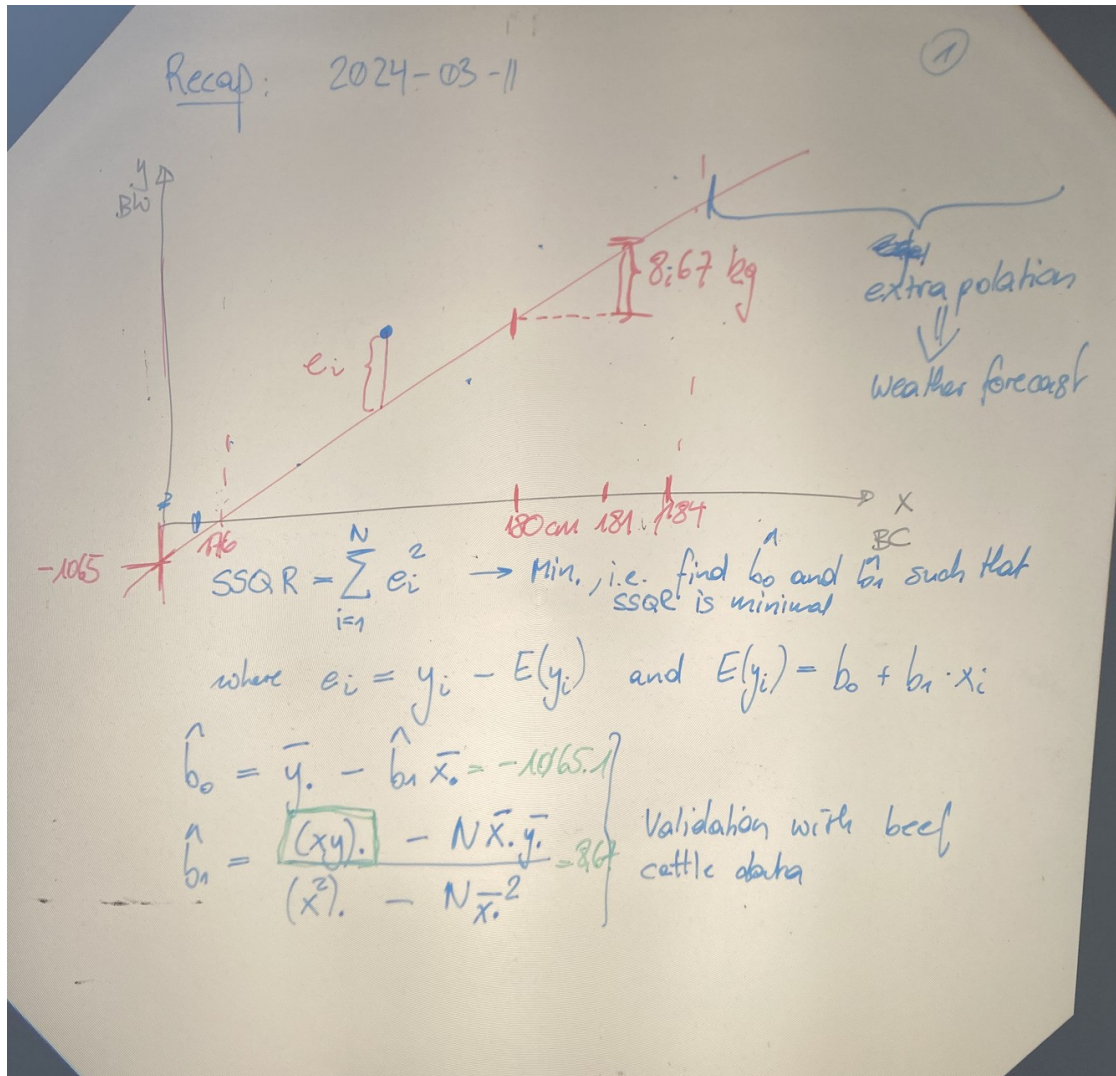 1
Recap: 2024-03-11
y
BW
8,67 kg
ei
extrapolation
⇓
weather forecast
180 cm 181 184
X
BC
176
-1065
SSQR = ∑_{i=1}^{N} ei² → Min., i.e. find b̂0 and b̂1 such that
SSQR is minimal
where ei = yi - E(yi) and E(yi) = b0 + b1 · xi
b̂0 = ȳ. - b̂1 x̄. = -1065.1
b̂1 = ((xy). - N x̄. ȳ.) / ((x²). - N x̄.²) = 8.67
Validation with beef
cattle data